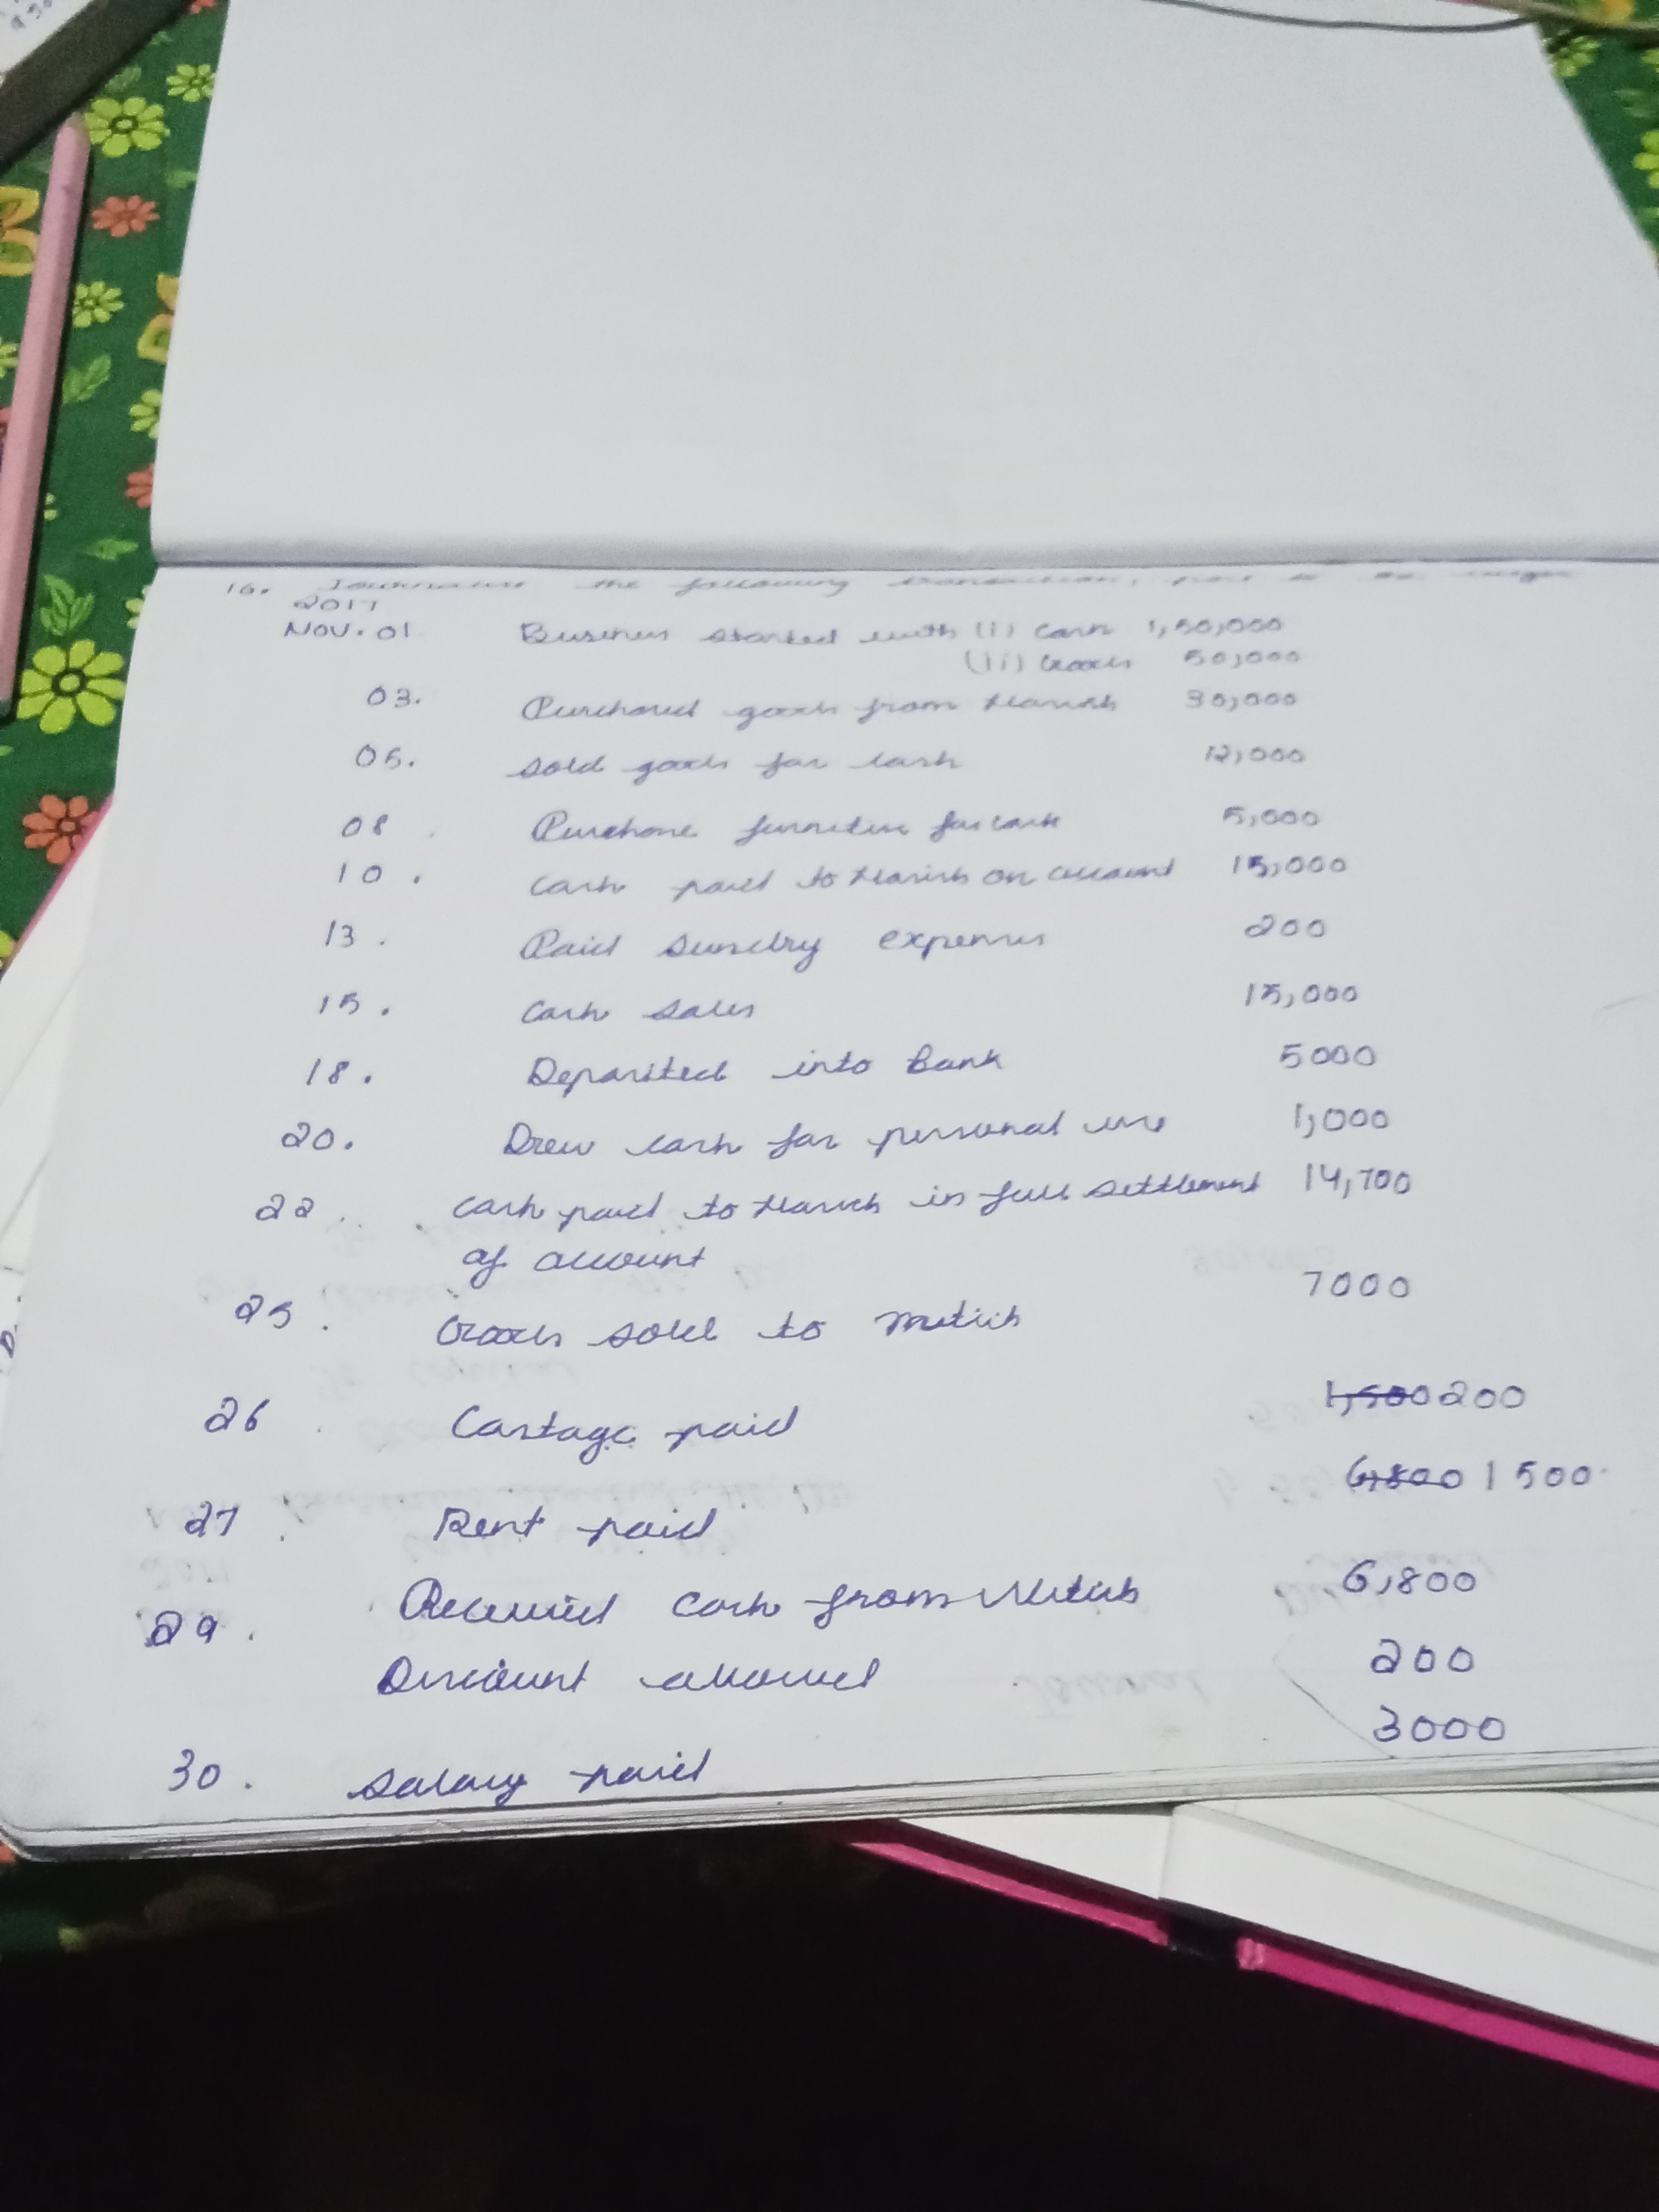 16. Journalise the following transactions, post to the ledger
2017
Nov. 01 Business started with (i) Cash 1,50,000
(ii) Goods 50,000
03. Purchased goods from Harish 30,000
05. Sold goods for cash 12,000
08 Purchase furniture for cash 5,000
10. Cash paid to Harish on account 15,000
13. Paid sundry expenses 200
15. Cash sales 15,000
18. Deposited into Bank 5000
20. Drew cash for personal use 1,000
22. Cash paid to Harish in full settlement 14,700
of account
25. Goods sold to Nitish 7000
26 Cartage paid 1,500 200
27 Rent paid 6,800 1500
29. Received cash from Nitish 6,800
Discount allowed 200
30. Salary paid 3000